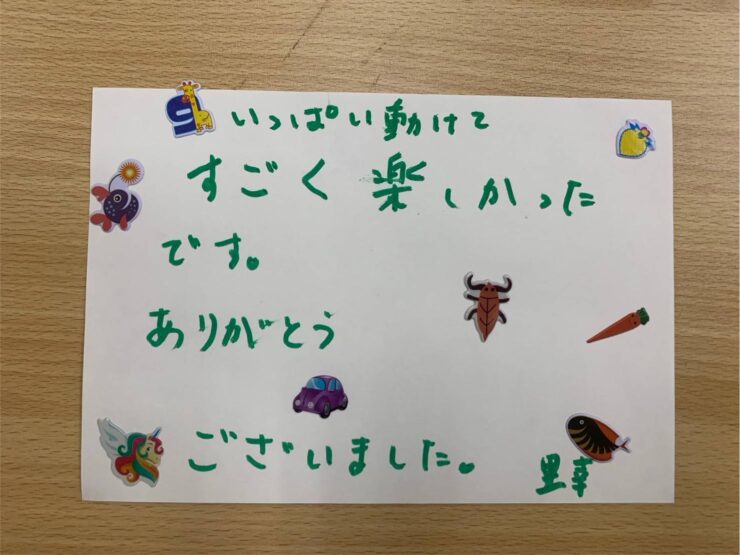 いっぱい動けて
すごく楽しかった
です。
ありがとう
ございました。
里幸
9